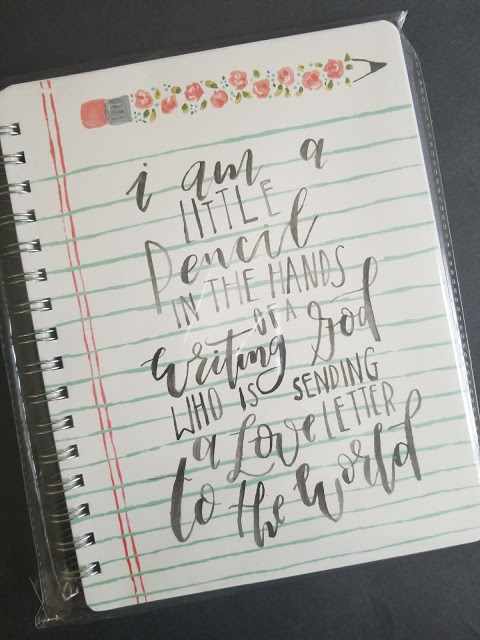 i am a
LITTLE
Pencil
IN THE HANDS
OF A
writing God
WHO IS SENDING
a Love LETTER
to the World